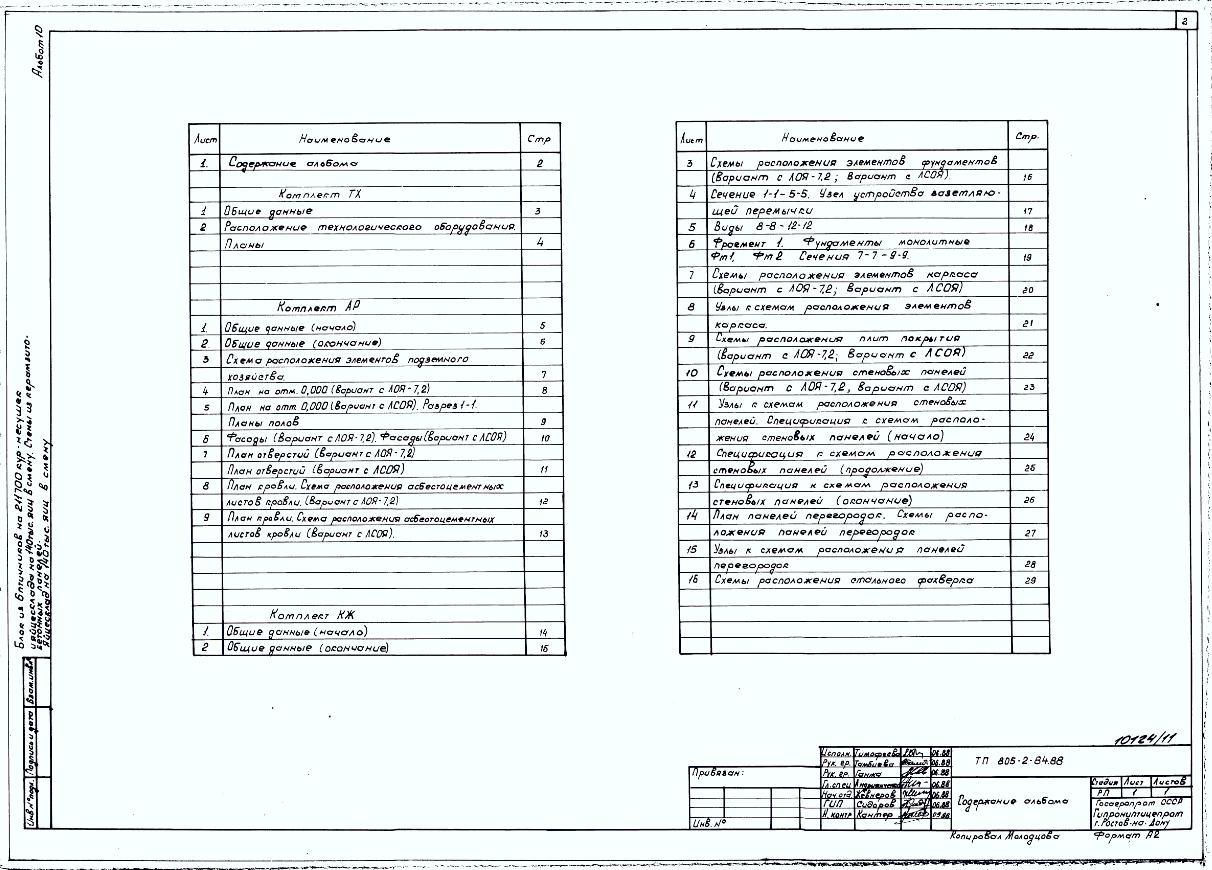 2
Альбом 10
Блок из 6 птичников на 21700 кур-несушек
и яйцесклада на 140 тыс. яиц в смену. Стены из керамзито-
бетонных панелей.
Яйцесклад на 140 тыс. яиц в смену
Лист Наименование Стр
1. Содержание альбома 2
Комплект ТХ
1 Общие данные 3
2 Расположение технологического оборудования.
Планы 4
Комплект АР
1. Общие данные (начало) 5
2. Общие данные (окончание) 6
3 Схема расположения элементов подземного
хозяйства. 7
4 План на отм. 0,000 (Вариант с ЛОЯ-7,2) 8
5 План на отм 0,000 (Вариант с ЛСОЯ). Разрез 1-1.
Планы полов 9
6 Фасады (Вариант с ЛОЯ-7,2). Фасады (Вариант с ЛСОЯ) 10
7 План отверстий (Вариант с ЛОЯ-7,2)
План отверстий (Вариант с ЛСОЯ) 11
8 План кровли. Схема расположения асбестоцементных
листов кровли. (Вариант с ЛОЯ-7,2) 12
9 План кровли. Схема расположения асбестоцементных
листов кровли (Вариант с ЛСОЯ). 13
Комплект КЖ
1. Общие данные (начало) 14
2 Общие данные (окончание) 15
Лист Наименование Стр.
3 Схемы расположения элементов фундаментов
(Вариант с ЛОЯ-7,2; Вариант с ЛСОЯ). 16
4 Сечение 1-1-5-5. Узел устройства заземляю-
щей перемычки 17
5 Виды 8-8-12-12 18
6 Фрагмент 1. Фундаменты монолитные
Фм1, Фм2 Сечения 7-7-9-9. 19
7 Схемы расположения элементов каркаса
(Вариант с ЛОЯ-7,2; Вариант с ЛСОЯ) 20
8 Узлы к схемам расположения элементов
каркаса. 21
9 Схемы расположения плит покрытия
(Вариант с ЛОЯ-7,2; Вариант с ЛСОЯ) 22
10 Схемы расположения стеновых панелей
(Вариант с ЛОЯ-7,2, Вариант с ЛСОЯ) 23
11 Узлы к схемам расположения стеновых
панелей. Спецификация к схемам располо-
жения стеновых панелей (начало) 24
12 Спецификация к схемам расположения
стеновых панелей (продолжение) 25
13 Спецификация к схемам расположения
стеновых панелей (окончание) 26
14 План панелей перегородок. Схемы распо-
ложения панелей перегородок 27
15 Узлы к схемам расположения панелей
перегородок 28
16 Схемы расположения стального фахверка 29
Инв. № подл. Подпись и дата Взам. инв. №
10124/11
Привязан:
Инв. №
Исполн. Тимофеева 06.88
Рук. гр. Тамбиева 06.88
Рук. гр. Ганжа 06.88
Гл. спец 06.88
Нач. отд Кевнеров 06.88
ГИП Сидоров 06.88
Н. контр Кантер 09.88
ТП 805-2-84.88
Содержание альбома
Стадия Лист Листов
РП 1 1
Госагропром СССР
Гипрониптицепром
г. Ростов-на-Дону
Копировал Молодцова Формат А2